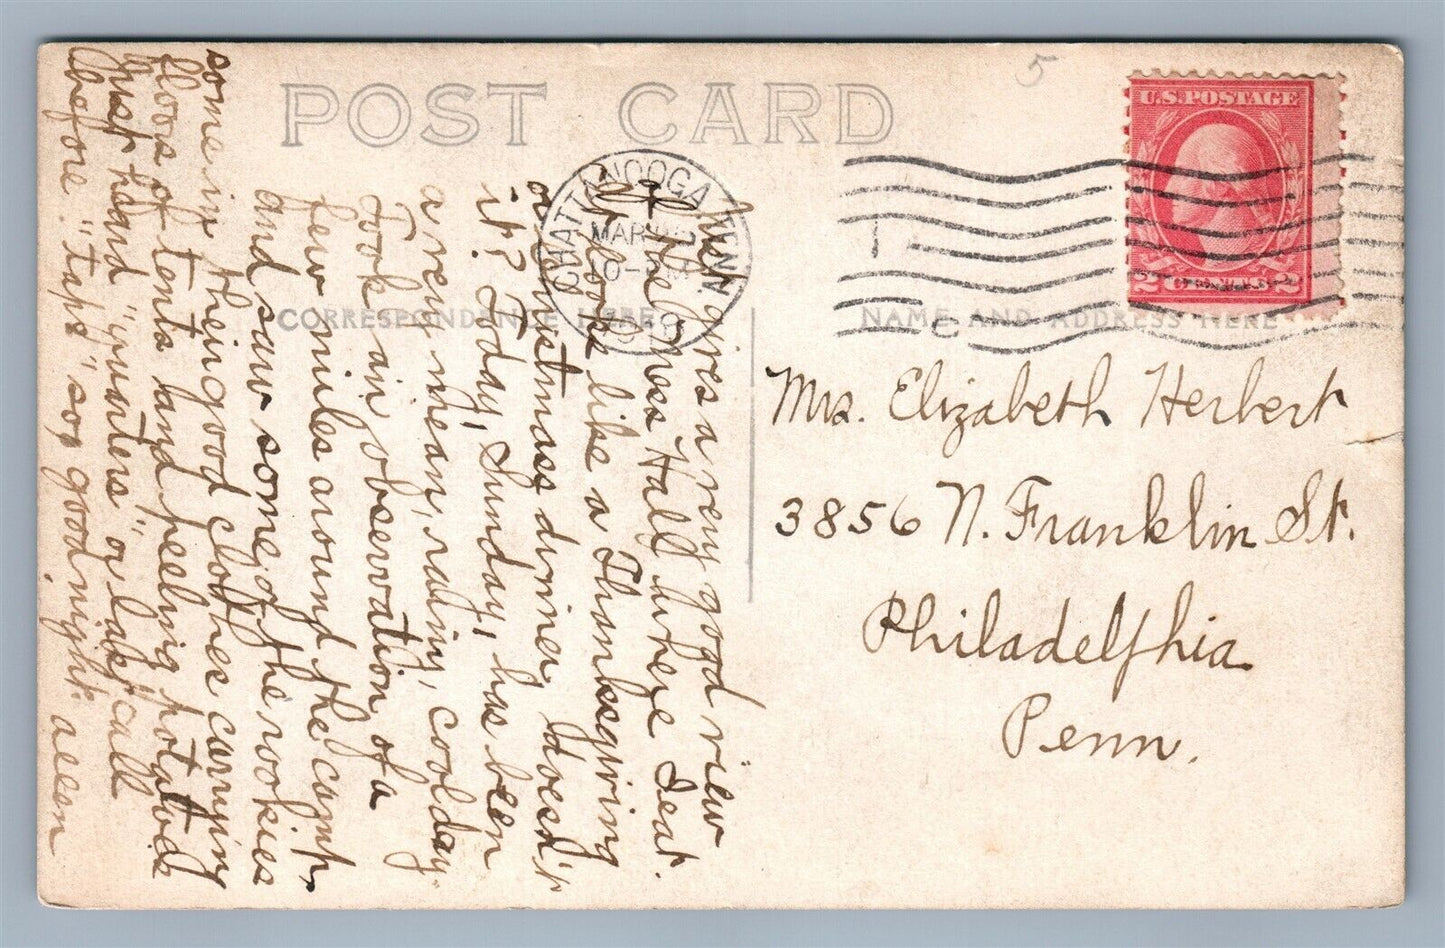 POST CARD
5
U.S. POSTAGE
2 CENTS 2
CHATTANOOGA TENN
MAR
10-
191
CORRESPONDENCE HERE
NAME AND ADDRESS HERE
Mrs. Elizabeth Herbert
3856 N. Franklin St.
Philadelphia
Penn.
This gives a very good view
of the Mess Hall where I eat.
It looks like a Thanksgiving
or Christmas dinner, doesn't
it? Today, Sunday, has been
a very mean, rainy, cool day.
Took an observation of a
few miles around the camp,
and saw some of the rookies
some in their good clothes carrying
floors of tents and peeling potatoes
Just heard "quarters" or last call
before "taps" so goodnight. Allen